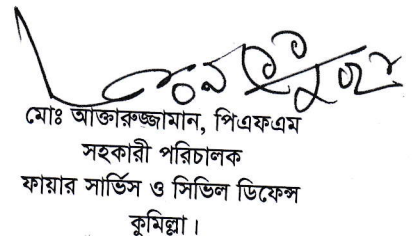 মোঃ আক্তারুজ্জামান, পিএফএম
সহকারী পরিচালক
ফায়ার সার্ভিস ও সিভিল ডিফেন্স
কুমিল্লা।